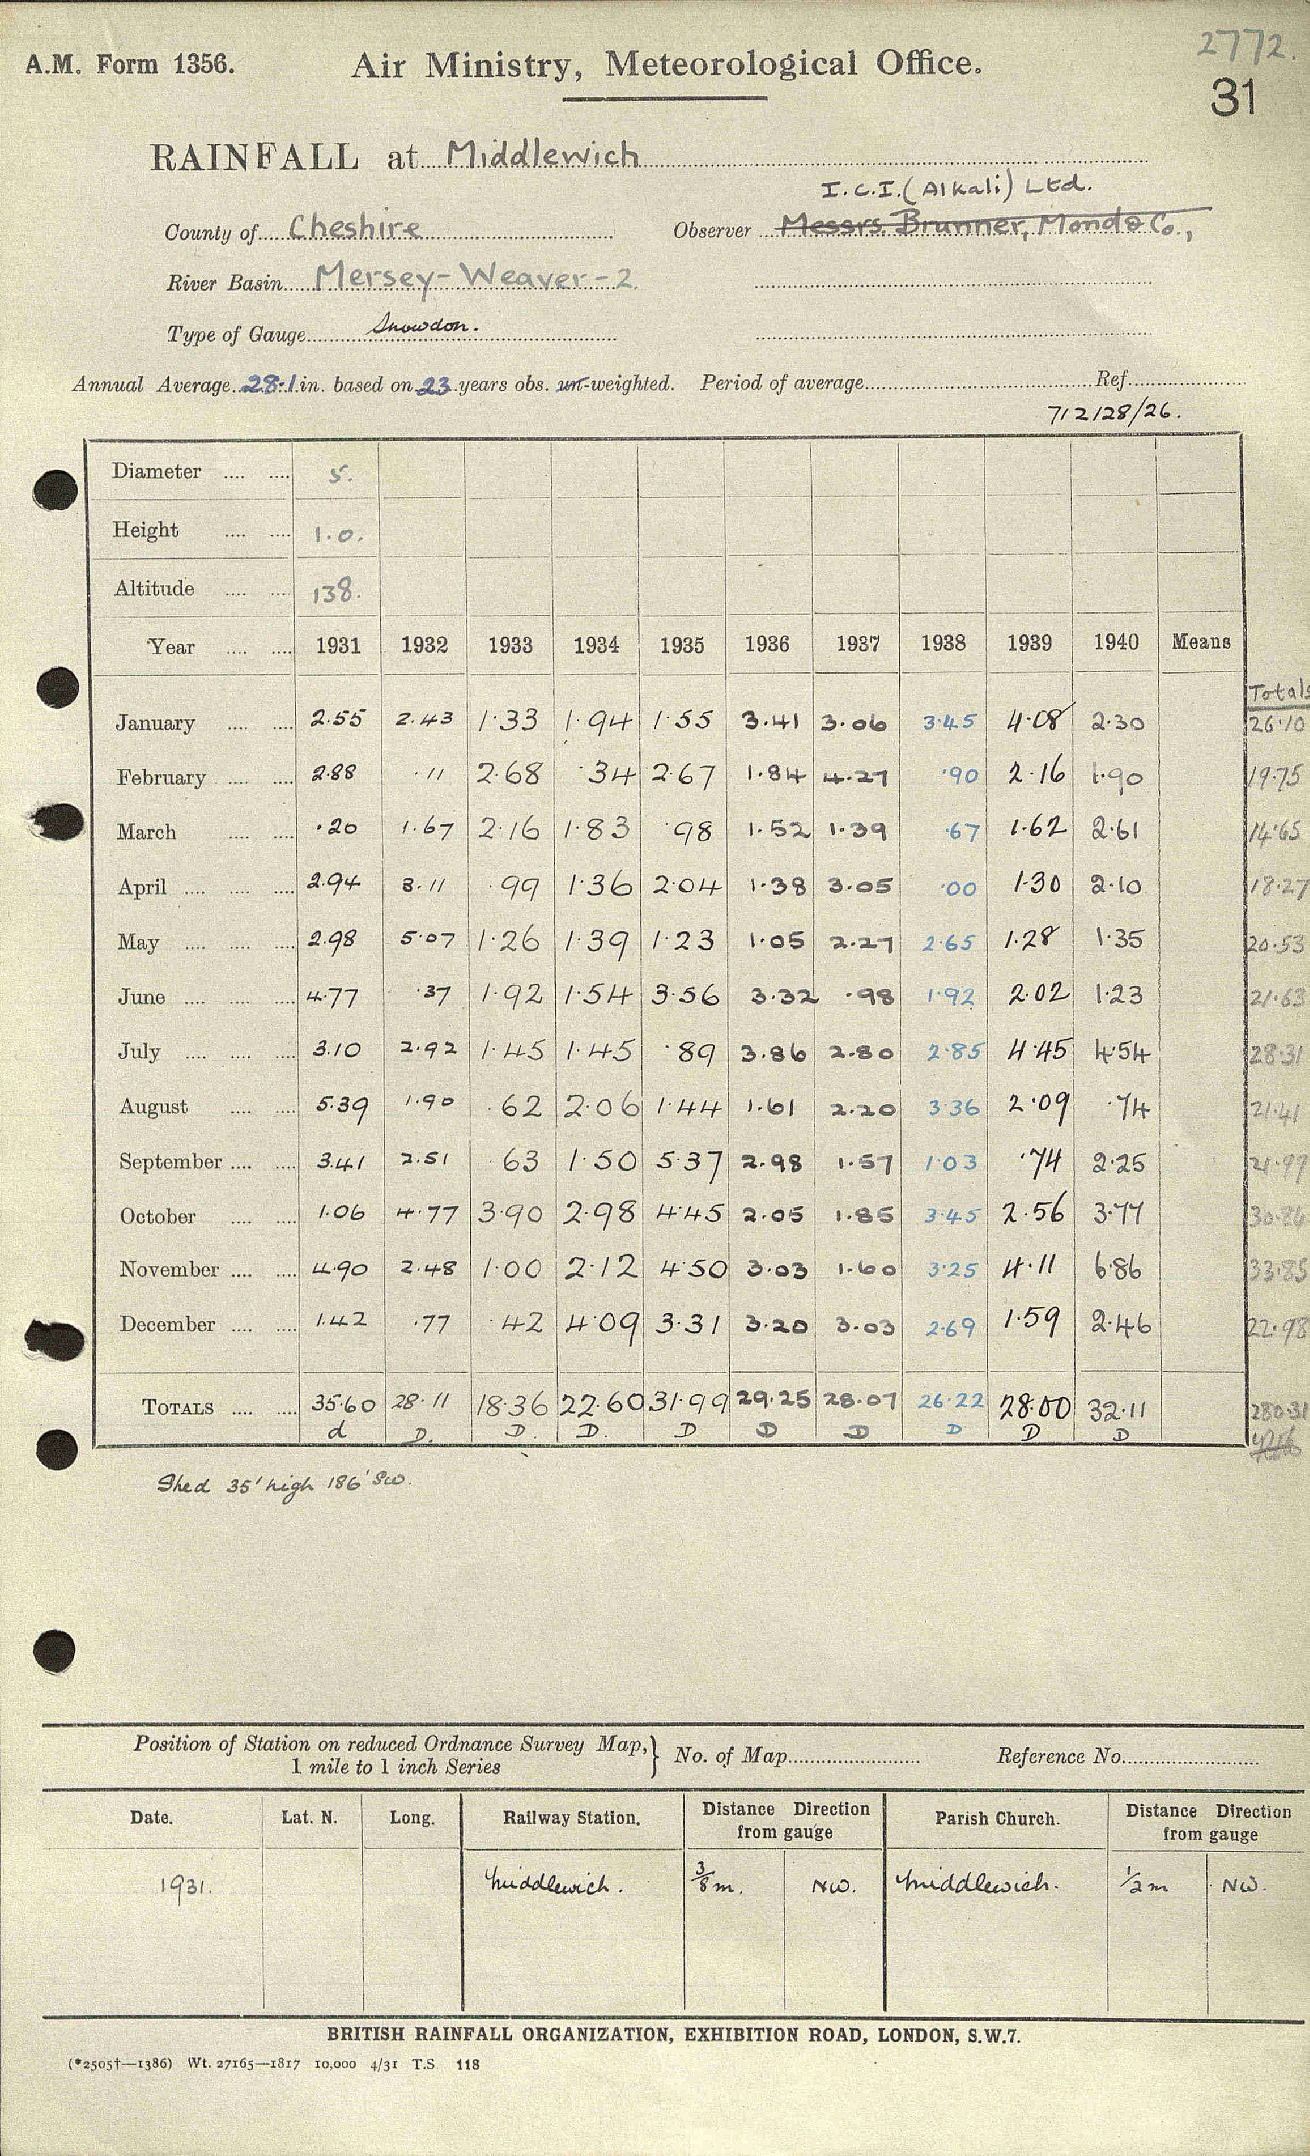 2772.
A.M. Form 1356. Air Ministry, Meteorological Office.
31
RAINFALL at Middlewich
I.C.I. (Alkali) Ltd.
County of Cheshire Observer Messrs. Brunner, Mond & Co.,
River Basin Mersey-Weaver-2
Type of Gauge Snowdon.
Annual Average 28.1 in. based on 23 years obs. un-weighted. Period of average Ref.
712128/26.
Diameter 5.
Height 1.0.
Altitude 138.
Year 1931 1932 1933 1934 1935 1936 1937 1938 1939 1940 Means
Totals
January 2.55 2.43 1.33 1.94 1.55 3.41 3.06 3.45 4.08 2.30 26.10
February 2.88 .11 2.68 .34 2.67 1.84 4.27 .90 2.16 1.90 19.75
March .20 1.67 2.16 1.83 .98 1.52 1.39 .67 1.62 2.61 14.65
April 2.94 3.11 .99 1.36 2.04 1.38 3.05 .00 1.30 2.10 18.27
May 2.98 5.07 1.26 1.39 1.23 1.05 2.27 2.65 1.28 1.35 20.53
June 4.77 .37 1.92 1.54 3.56 3.32 .98 1.92 2.02 1.23 21.63
July 3.10 2.92 1.45 1.45 .89 3.86 2.80 2.85 4.45 4.54 28.31
August 5.39 1.90 .62 2.06 1.44 1.61 2.20 3.36 2.09 .74 21.41
September 3.41 2.51 .63 1.50 5.37 2.98 1.57 1.03 .74 2.25 21.99
October 1.06 4.77 3.90 2.98 4.45 2.05 1.85 3.45 2.56 3.77 30.84
November 4.90 2.48 1.00 2.12 4.50 3.03 1.60 3.25 4.11 6.86 33.85
December 1.42 .77 .42 4.09 3.31 3.20 3.03 2.69 1.59 2.46 22.98
TOTALS 35.60 28.11 18.36 22.60 31.99 29.25 28.07 26.22 28.00 32.11 280.31
d D. D. D. D D D D D D
Shed 35' high 186' SW.
Position of Station on reduced Ordnance Survey Map, } No. of Map Reference No.
1 mile to 1 inch Series
Date. Lat. N. Long. Railway Station. Distance Direction from gauge Parish Church. Distance Direction from gauge
1931. Middlewich. 3/8 m. NW. Middlewich. 1/2 m NW.
BRITISH RAINFALL ORGANIZATION, EXHIBITION ROAD, LONDON, S.W.7.
(*2505†—1386) Wt. 27165—1817 10,000 4/31 T.S. 118